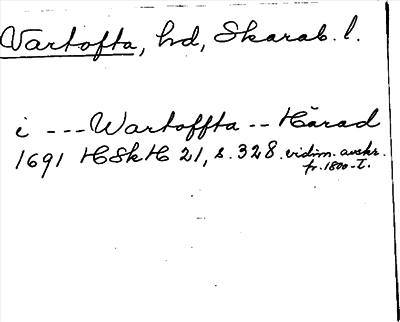 Vartofta, hd, Skarab. l.
i --- Wartoffta -- Härad
1691 HSkH 21, s. 328. vidim. avskr.
fr. 1800-t.